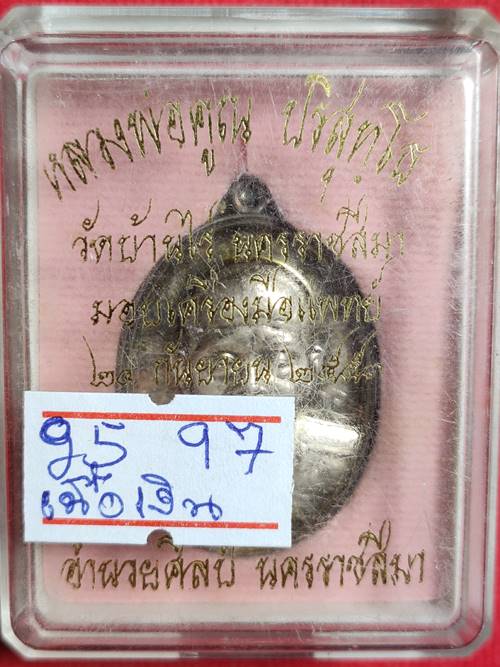 หลวงพ่อคูณ ปริสุทฺโธ
วัดบ้านไร่ นครราชสีมา
มอบเครื่องมือแพทย์
กันยายน
95 97
เนื้อเงิน
อำนวยศิลป์ นครราชสีมา